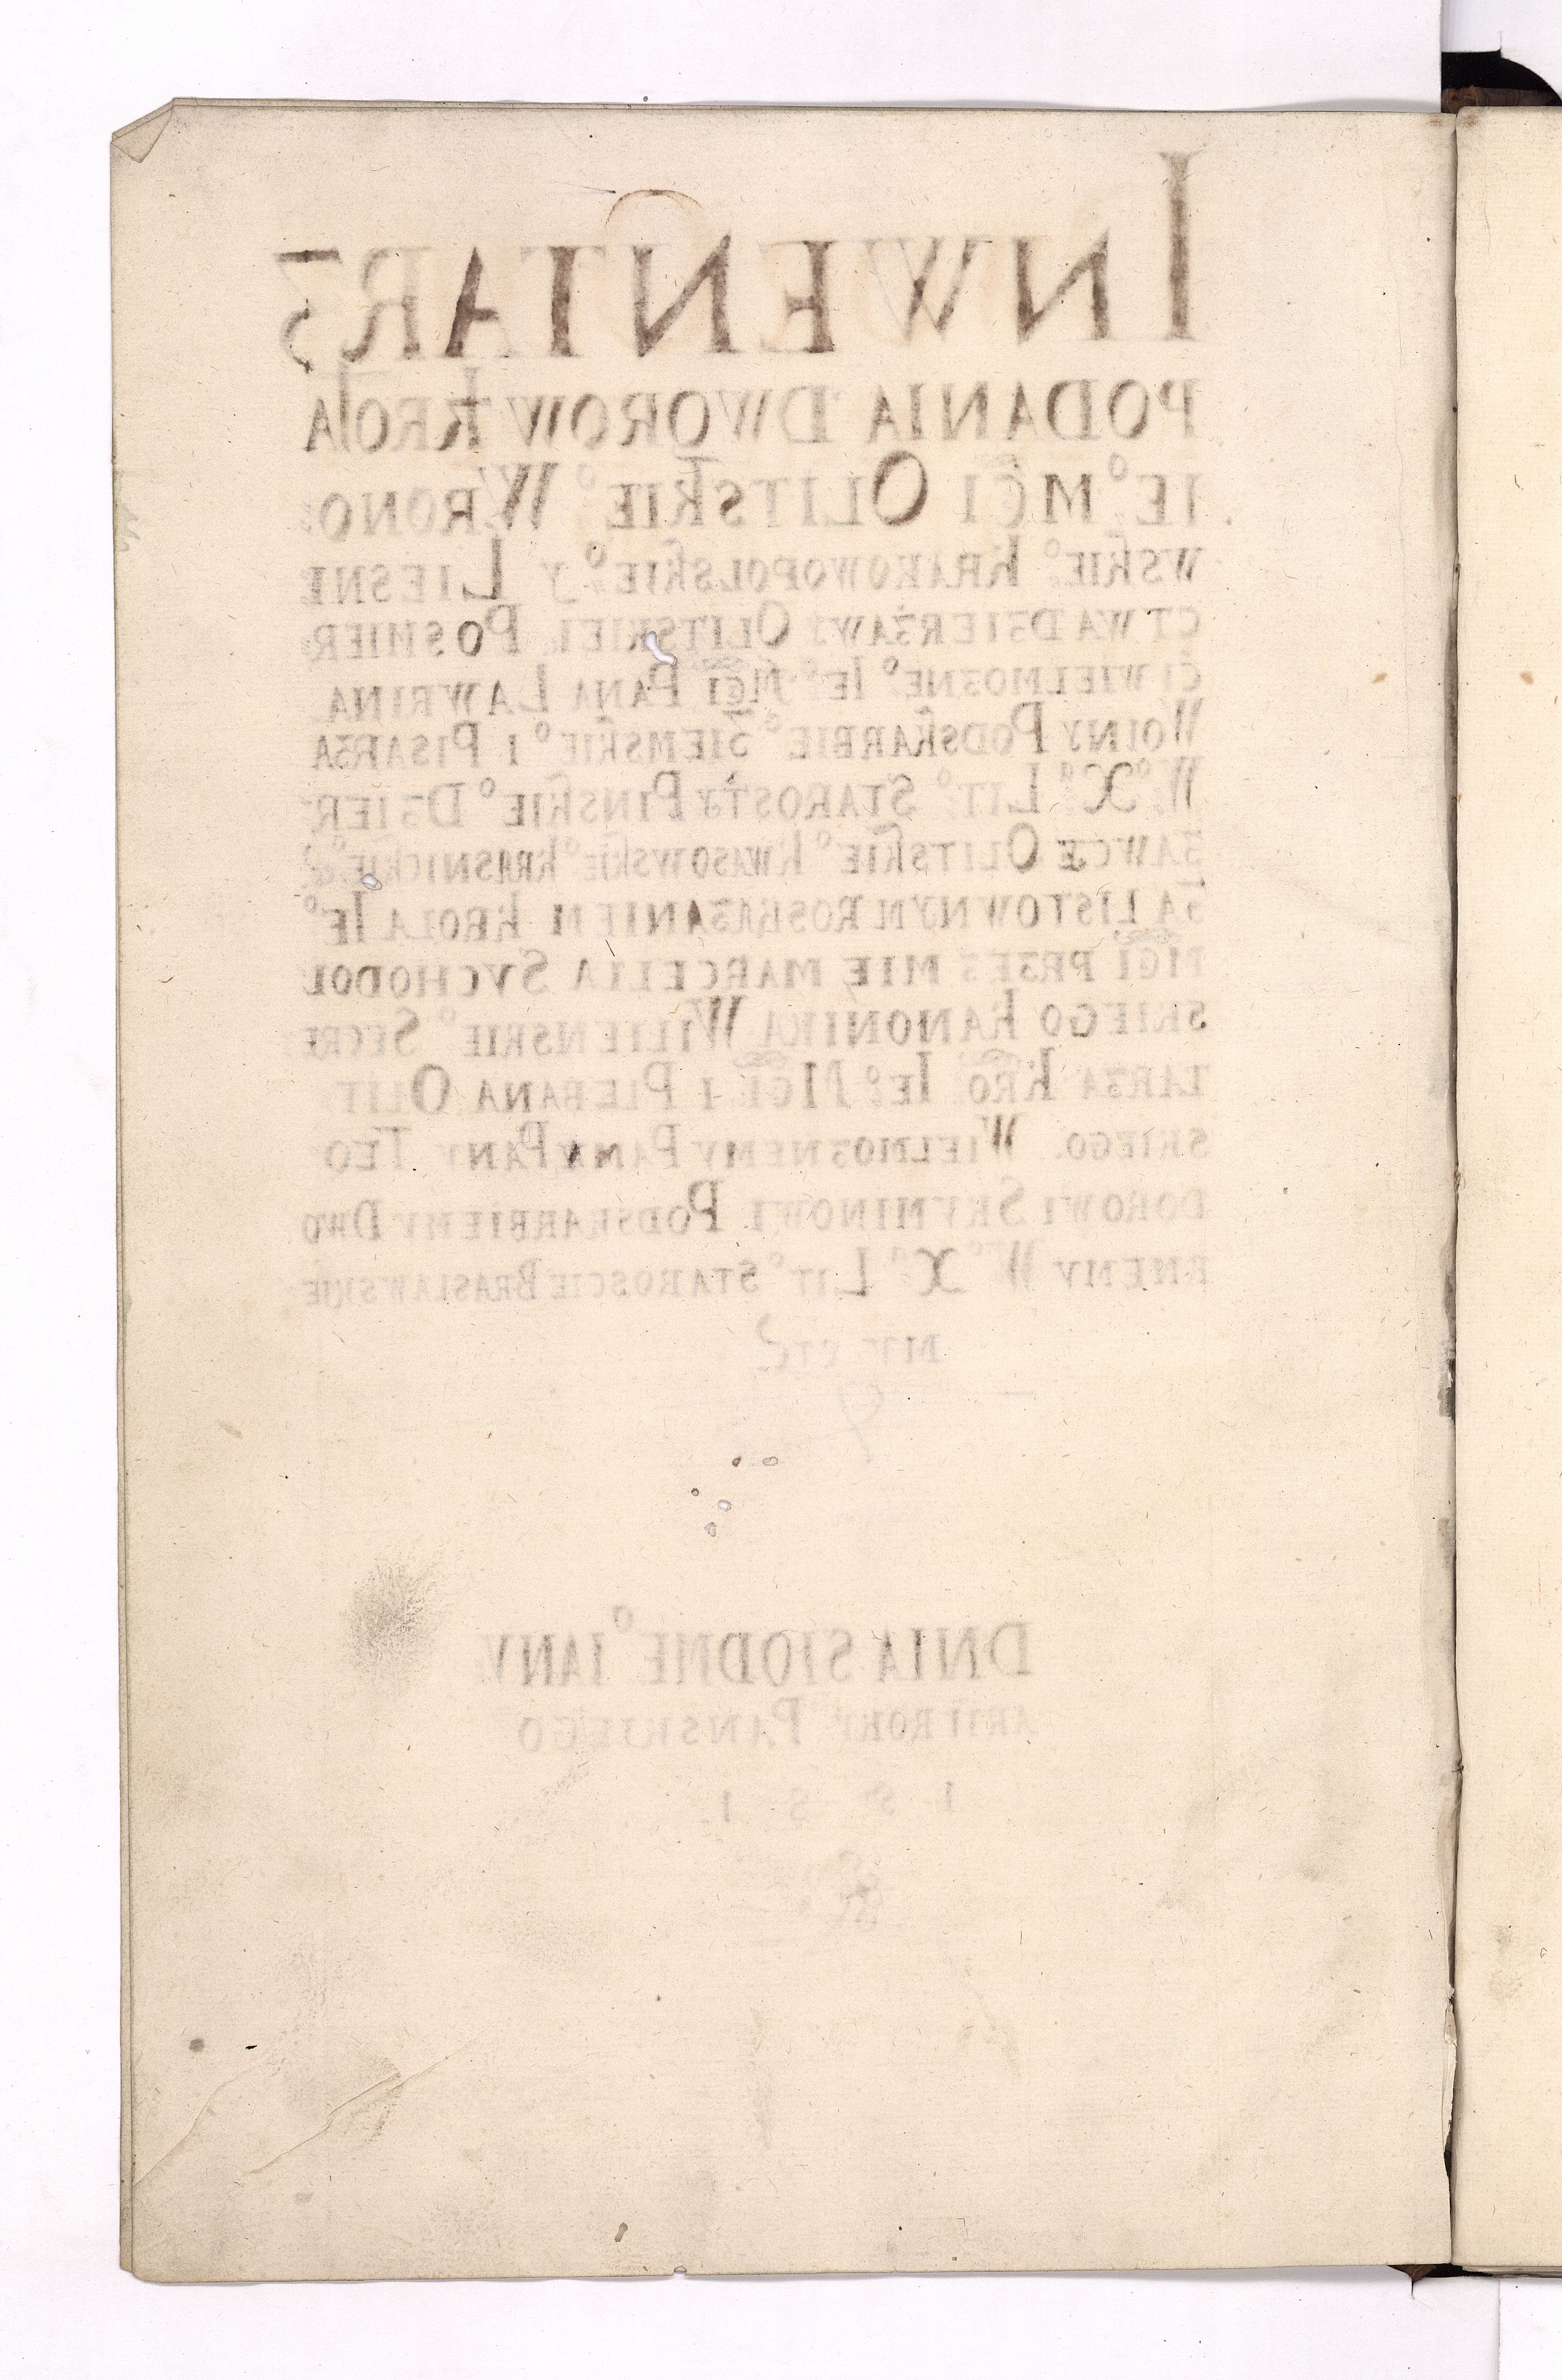 INWENTARZ
PODANIA DWOROW KROLA
IE° MCI OLITSKIE° WRONO
WSKIE° KRAKOWOPOLSKIE° Y LIESNI
CTWA DZIERZAWY OLITSKIEI POSMIER
CI WIELMOZNE° IE° MCI PANA LAWRINA
WOINY PODSKARBIE° ZIEMSKIE° I PISARZA
W° X^a LIT° STAROSTY PINSKIE° DZIER
ZAWCE OLITSKIE° KWASOWSKIE° KRASNICKIE°
ZA LISTOWNYM ROSKAZANIEM KROLA IE°
MCI PRZES MIE MARCELIA SVCHODOL
SKIEGO KANONIKA WILIENSKIE° SECRE
TARZA KRO IE° MCI I PLEBANA OLIT
SKIEGO WIELMOZNEMV PANV PANV TEO
DOROWI SKVMINOWI PODSKARBIEMV DWO
RNEMV W° X^a LIT° STAROSCIE BRASLAWSKIE
MV etc
DNIA SIODME° IANV
ARII ROKV PANSKIEGO
1 5 8 1